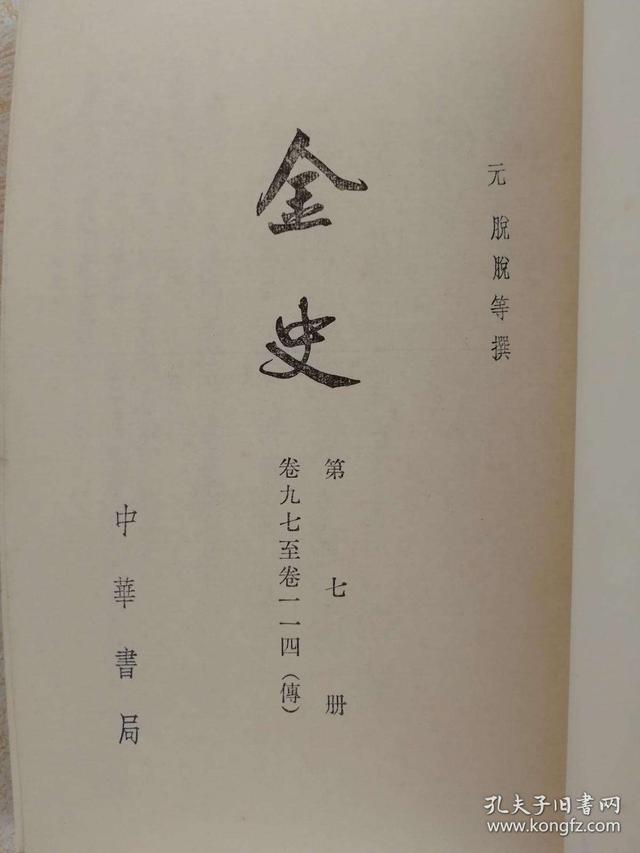 元 脫脫等撰
金史
第七册
卷九七至卷一一四(傳)
中華書局
孔夫子旧書网
www.kongfz.com